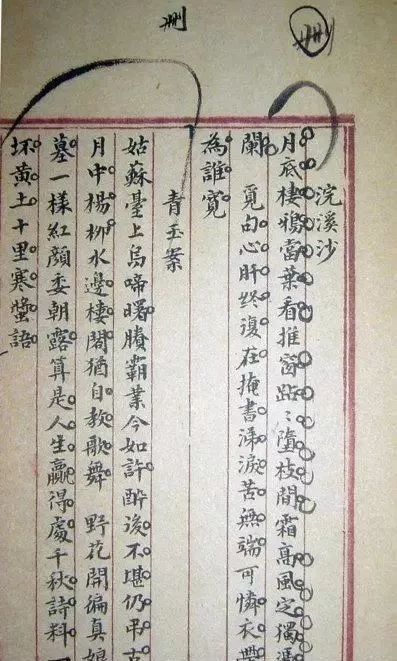 刪
刪
浣溪沙
月底棲鴉當葉看推窗跕〻墮枝間霜高風定獨憑
闌 覓句心肝終復在掩書涕淚苦無端可憐衣帶
為誰寬
青玉案
姑蘇臺上烏啼曙賸霸業今如許醉後不堪仍弔古
月中楊柳水邊樓閣猶自教歌舞 野花開徧真娘
墓一樣紅顏委朝露算是人生贏得處千秋詩料一
坏黃土十里寒螿語